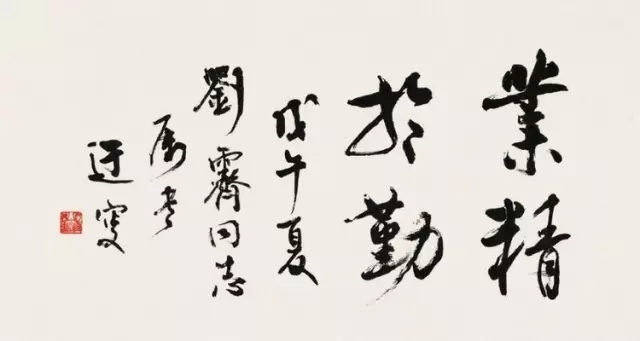 業精
於勤
戊午夏
劉霽同志
属书
迂叟